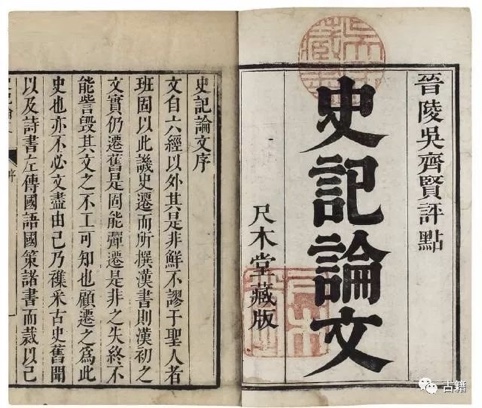 晉陵吳齊賢評點
史記論文
尺木堂藏版
史記論文序
文自六經以外其是非鮮不謬于聖人者
班固以此譏史遷而所撰漢書則漢初之
文實仍遷舊是固能彈遷是非之失終不
能訾毁其文之不工可知也顧遷之爲此
史也亦不必文盡由己乃襍采古史舊聞
以及詩書左傳國語國策諸書而裁以己
古籍